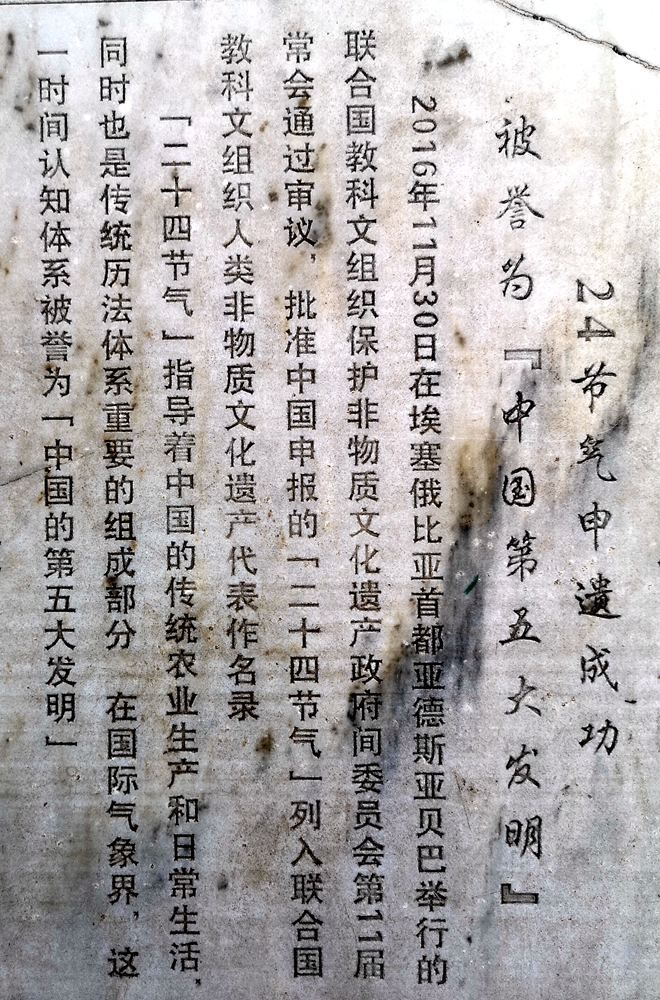 24节气申遗成功
被誉为『中国第五大发明』
2016年11月30日在埃塞俄比亚首都亚德斯亚贝巴举行的
联合国教科文组织保护非物质文化遗产政府间委员会第11届
常会通过审议，批准中国申报的「二十四节气」列入联合国
教科文组织人类非物质文化遗产代表作名录
「二十四节气」指导着中国的传统农业生产和日常生活，
同时也是传统历法体系重要的组成部分 在国际气象界，这
一时间认知体系被誉为「中国的第五大发明」